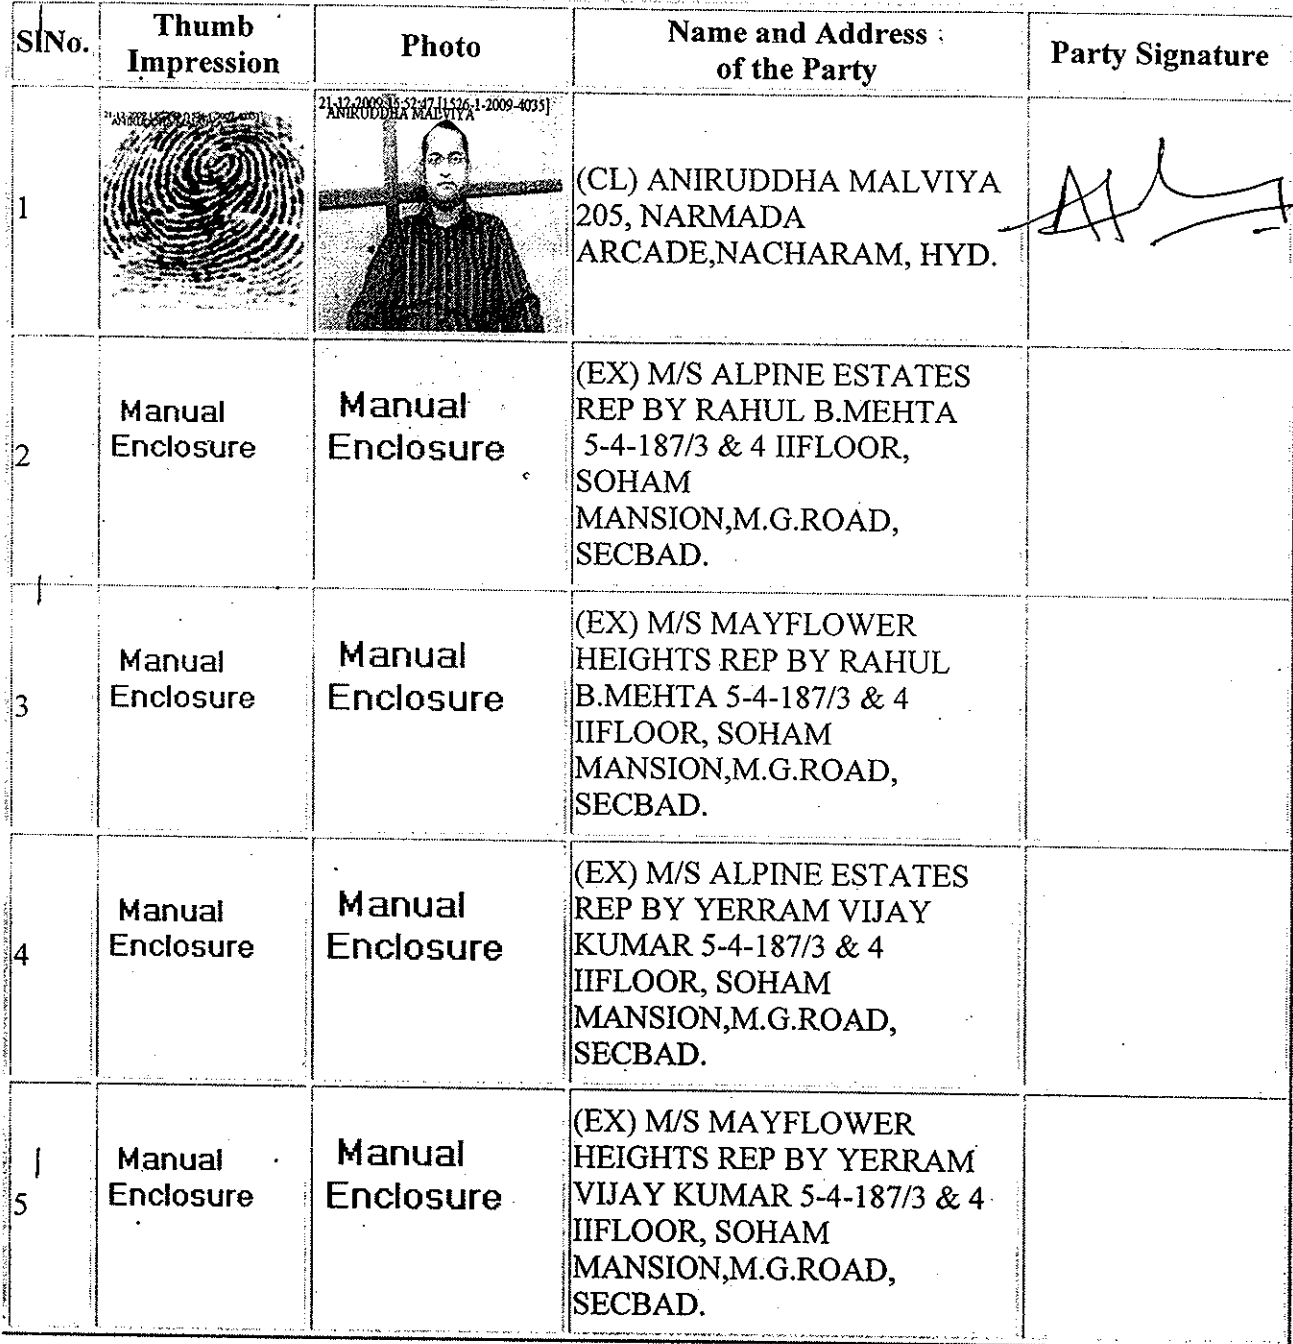 SlNo.
Thumb
Impression
Photo
Name and Address
of the Party
Party Signature
1
21-12-2009 15:52:47 [1526-1-2009-4035]
ANIRUDDHA MALVIYA
(CL) ANIRUDDHA MALVIYA
205, NARMADA
ARCADE,NACHARAM, HYD.
2
Manual
Enclosure
Manual
Enclosure
(EX) M/S ALPINE ESTATES
REP BY RAHUL B.MEHTA
5-4-187/3 & 4 IIFLOOR,
SOHAM
MANSION,M.G.ROAD,
SECBAD.
3
Manual
Enclosure
Manual
Enclosure
(EX) M/S MAYFLOWER
HEIGHTS REP BY RAHUL
B.MEHTA 5-4-187/3 & 4
IIFLOOR, SOHAM
MANSION,M.G.ROAD,
SECBAD.
4
Manual
Enclosure
Manual
Enclosure
(EX) M/S ALPINE ESTATES
REP BY YERRAM VIJAY
KUMAR 5-4-187/3 & 4
IIFLOOR, SOHAM
MANSION,M.G.ROAD,
SECBAD.
5
Manual
Enclosure
Manual
Enclosure
(EX) M/S MAYFLOWER
HEIGHTS REP BY YERRAM
VIJAY KUMAR 5-4-187/3 & 4
IIFLOOR, SOHAM
MANSION,M.G.ROAD,
SECBAD.